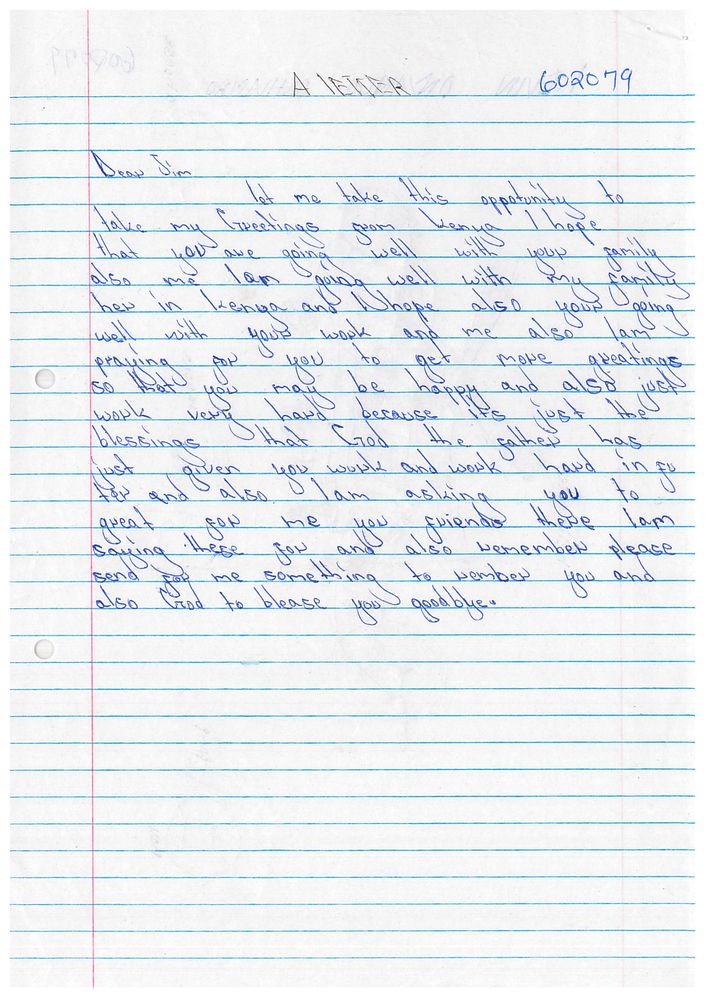 A LETTER 602079
Dear Jim
let me take this oppotunity to
take my Greetings from Kenya I hope
that you are going well with your family
also me Iam going well with my family
her in Kenya and I hope also your going
well with your work and me also Iam
praying for you to get more greatings
so that you may be happy and also just
work very hard because its just the
blessings that God the father has
just given you work and work hard in fu
ter and also Iam asking you to
great for me you friends there Iam
saying these for and also remember please
send for me something to rember you and
also God to blease you goodbye.